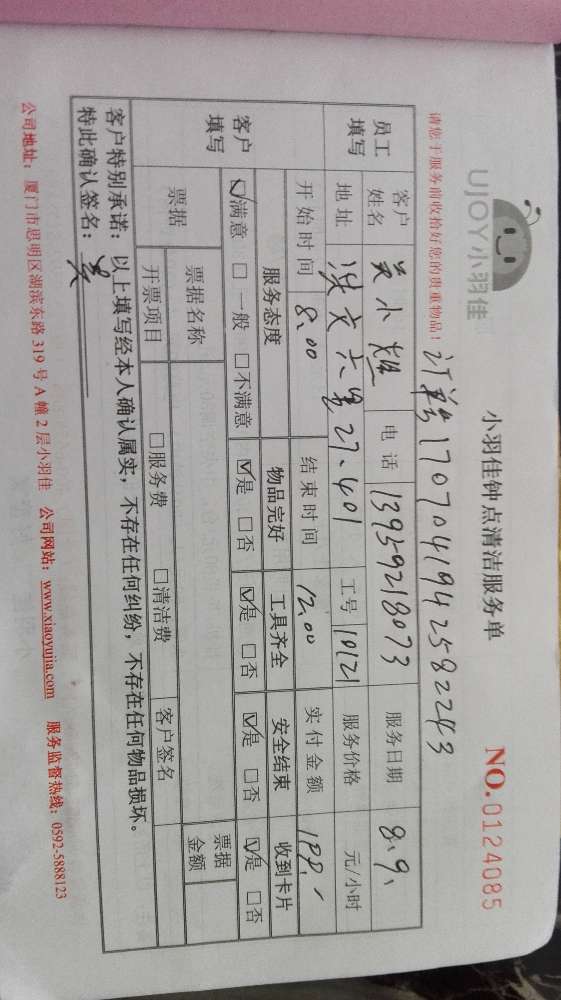 UJOY小羽佳
小羽佳钟点清洁服务单
NO.0124085
请您于服务前收拾好您的贵重物品！
订单号1707041942582243
员工填写
客户姓名 吴小姐 电话 13959218073 服务日期 8.9、
地址 洪文六里27、401 工号 10121 服务价格 元/小时
开始时间 8:00 结束时间 12:00 实付金额
客户填写
服务态度 物品完好 工具齐全 安全结束 收到卡片
☑满意 □一般 □不满意 ☑是 □否 ☑是 □否 ☑是 □否 ☑是 □否
票据 票据名称 票据金额
开票项目 □服务费 □清洁费 客户签名
客户特别承诺：以上填写经本人确认属实，不存在任何纠纷，不存在任何物品损坏。
特此确认签名：吴
公司地址：厦门市思明区湖滨东路319号A幢2层小羽佳 公司网站：www.xiaoyujia.com 服务监督热线：0592-5888123